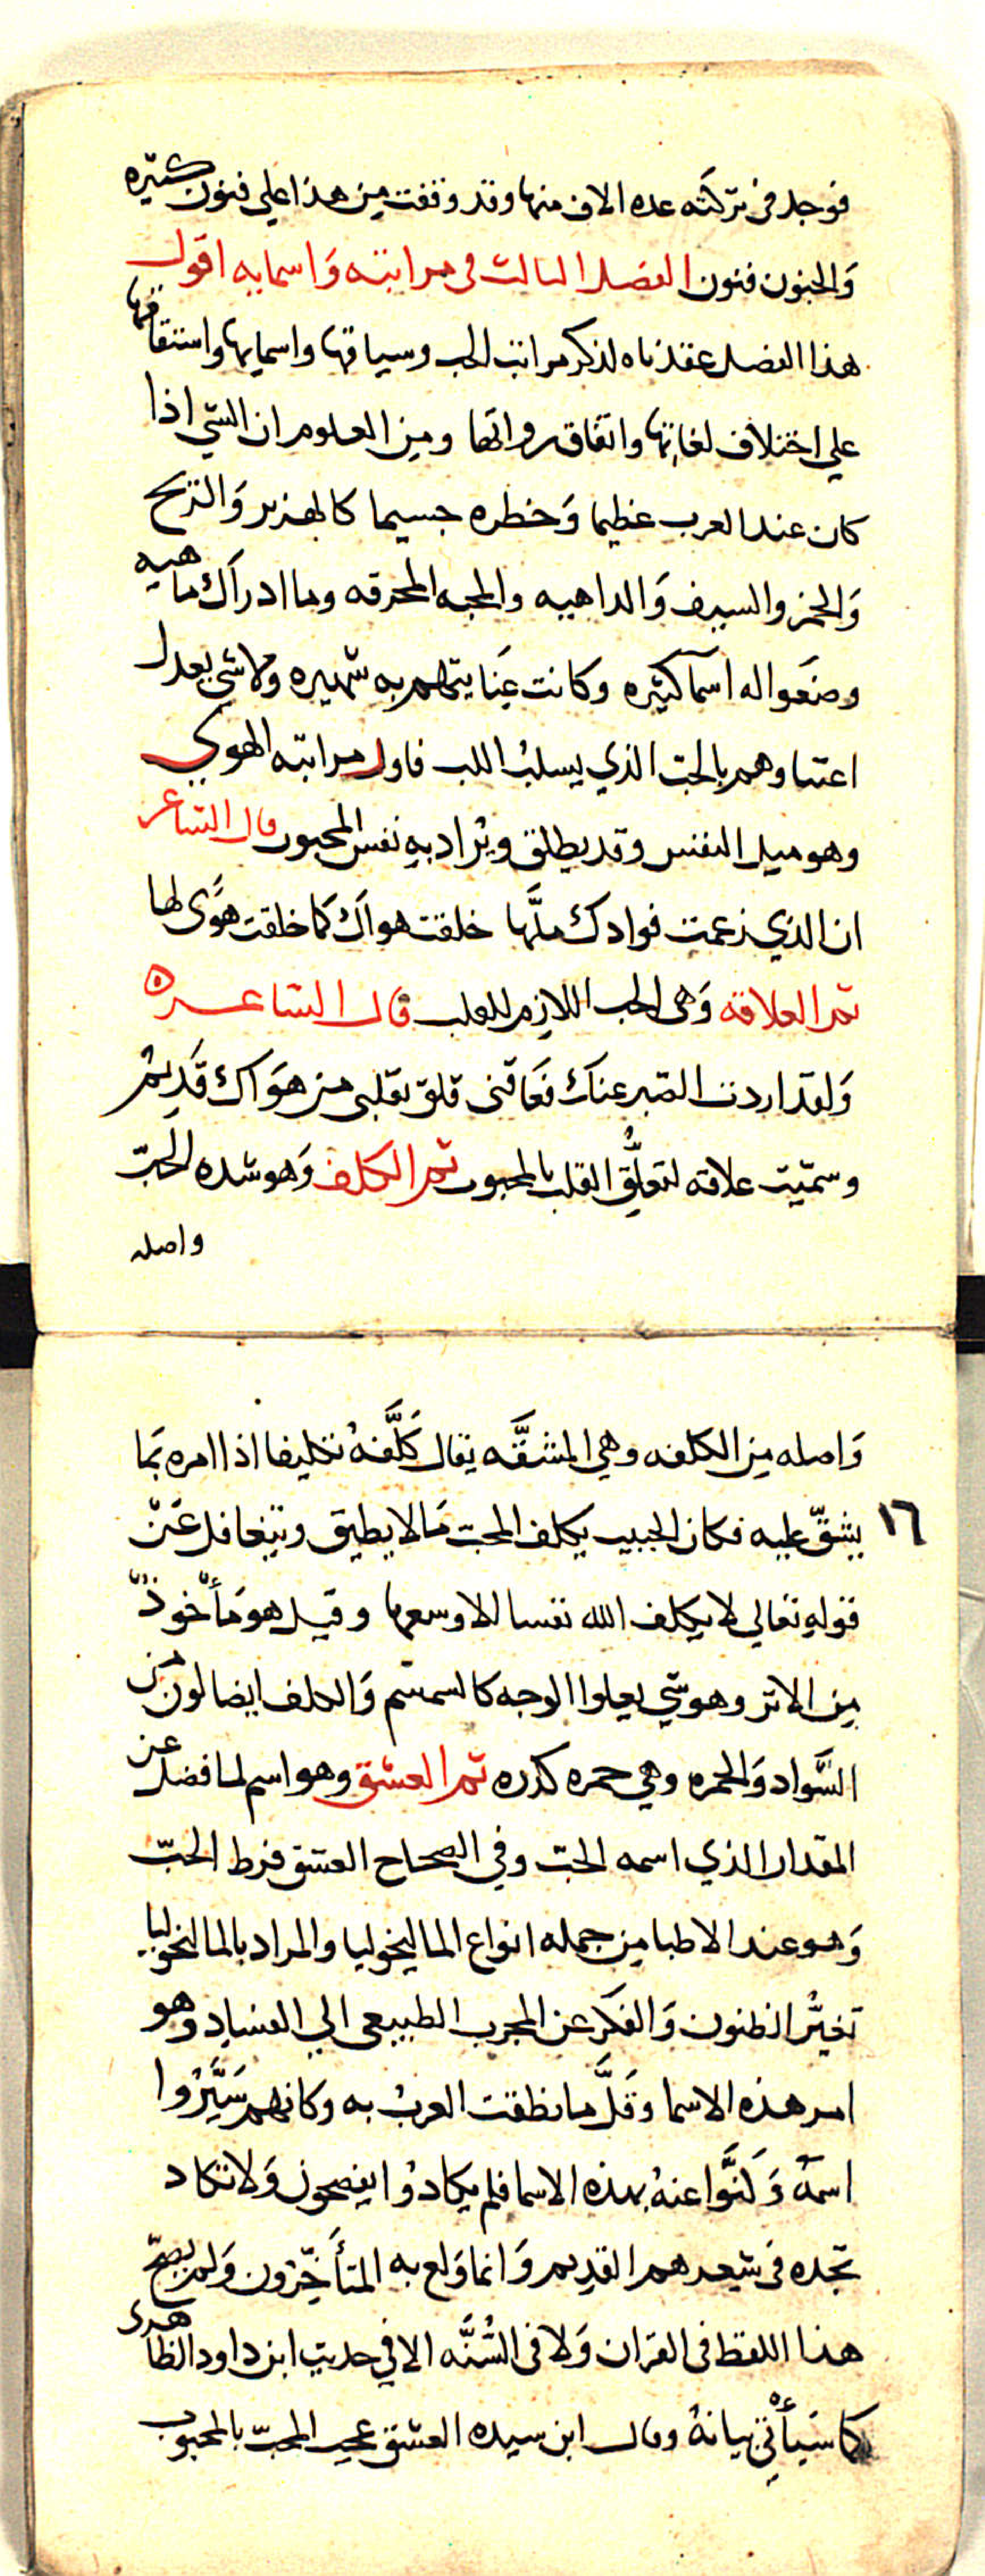 فوجد في تركته عده الاف منها وقد وقفت من هذا علي فنون كثيره
وَالجنون فنون الفصل الثالث في مراتبه وَاسمايه اقول
هذا الفصل عقدناه لذكر مراتب الحب وسياقها واسمايها واشتقاقها
علي اختلاف لغاتها واتفاق رواتها ومن المعلوم ان الشي اذا
كان عند العرب عظيما وَخطره جسيما كالهزبر وَالرمح
وَالخمر والسيف وَالداهيه والمحبه المحرقه وما ادراك ماهيه
وضعوا له اسما كثيره وكانت عِنَايتهم به شهيره ولا شي يعدل
اعتناوهم بالحب الذي يسلبُ اللب فاول مراتبه الهوي
وهو ميل النفس وقد يطلق ويراد به نفس المحبوب قال الشاعر
ان الذي زعمت فوادك ملَّها خلقت هواك كما خلقت هوًى لها
ثم العلاقه وَهي الحب اللازم للقلب قال الشاعره
وَلقد اردت الصبر عنك فعَاقنى قلق بقلبى من هوَاك قَدِيم
وسمّيت علاقه لتعلُّق القلب بالمحبوب ثم الكلف وَهو شده الحبّ
واصله
وَاصله من الكلفه وهي المشقَّه يقال كَلَّفهُ تكليفا اذا امره بمَا
١٦ يشقّ عليه فكان الحبيب يكلف المحب مَالا يطيق ويتغافل عَنْ
قوله تعالي لا يكلف الله نفسا الا وسعها وقيل هو مَأخوذٌ
من الاثر وهو شي يعلوا الوجه كالسمسم وَالكلف ايضا لون من
السَّواد وَالحمره وهي حمره كدره ثم العشق وهو اسم لما فضل عن
المقدار الذي اسمه الحبّ وفي الصحاح العشق فرط الحبّ
وَهو عند الاطبا من جمله انواع الماليخوليا والمراد بالمالنخوليا
تغيّر الظنون وَالفكر عن المجرب الطبيعى الي الفساد وهو
امر هذه الاسما وَقَلَّ ما نطقت العربُ به وكانهم سَتَرُوا
اسمَهُ وَكنَّوا عنهُ بهذه الاسما فلم يكادُوا يفصحون وَلا تكاد
تجده في شعرهم القديم وَانما وَلع به المتأخّرون وَلم يصحّ
هذا اللفظ في القران وَلا في السُّنَّه الا في حديث ابن داود الظاهرى
كما سَيأتي بيانهُ وقال ابن سيده العشق عجب المحبّ بالمحبوب